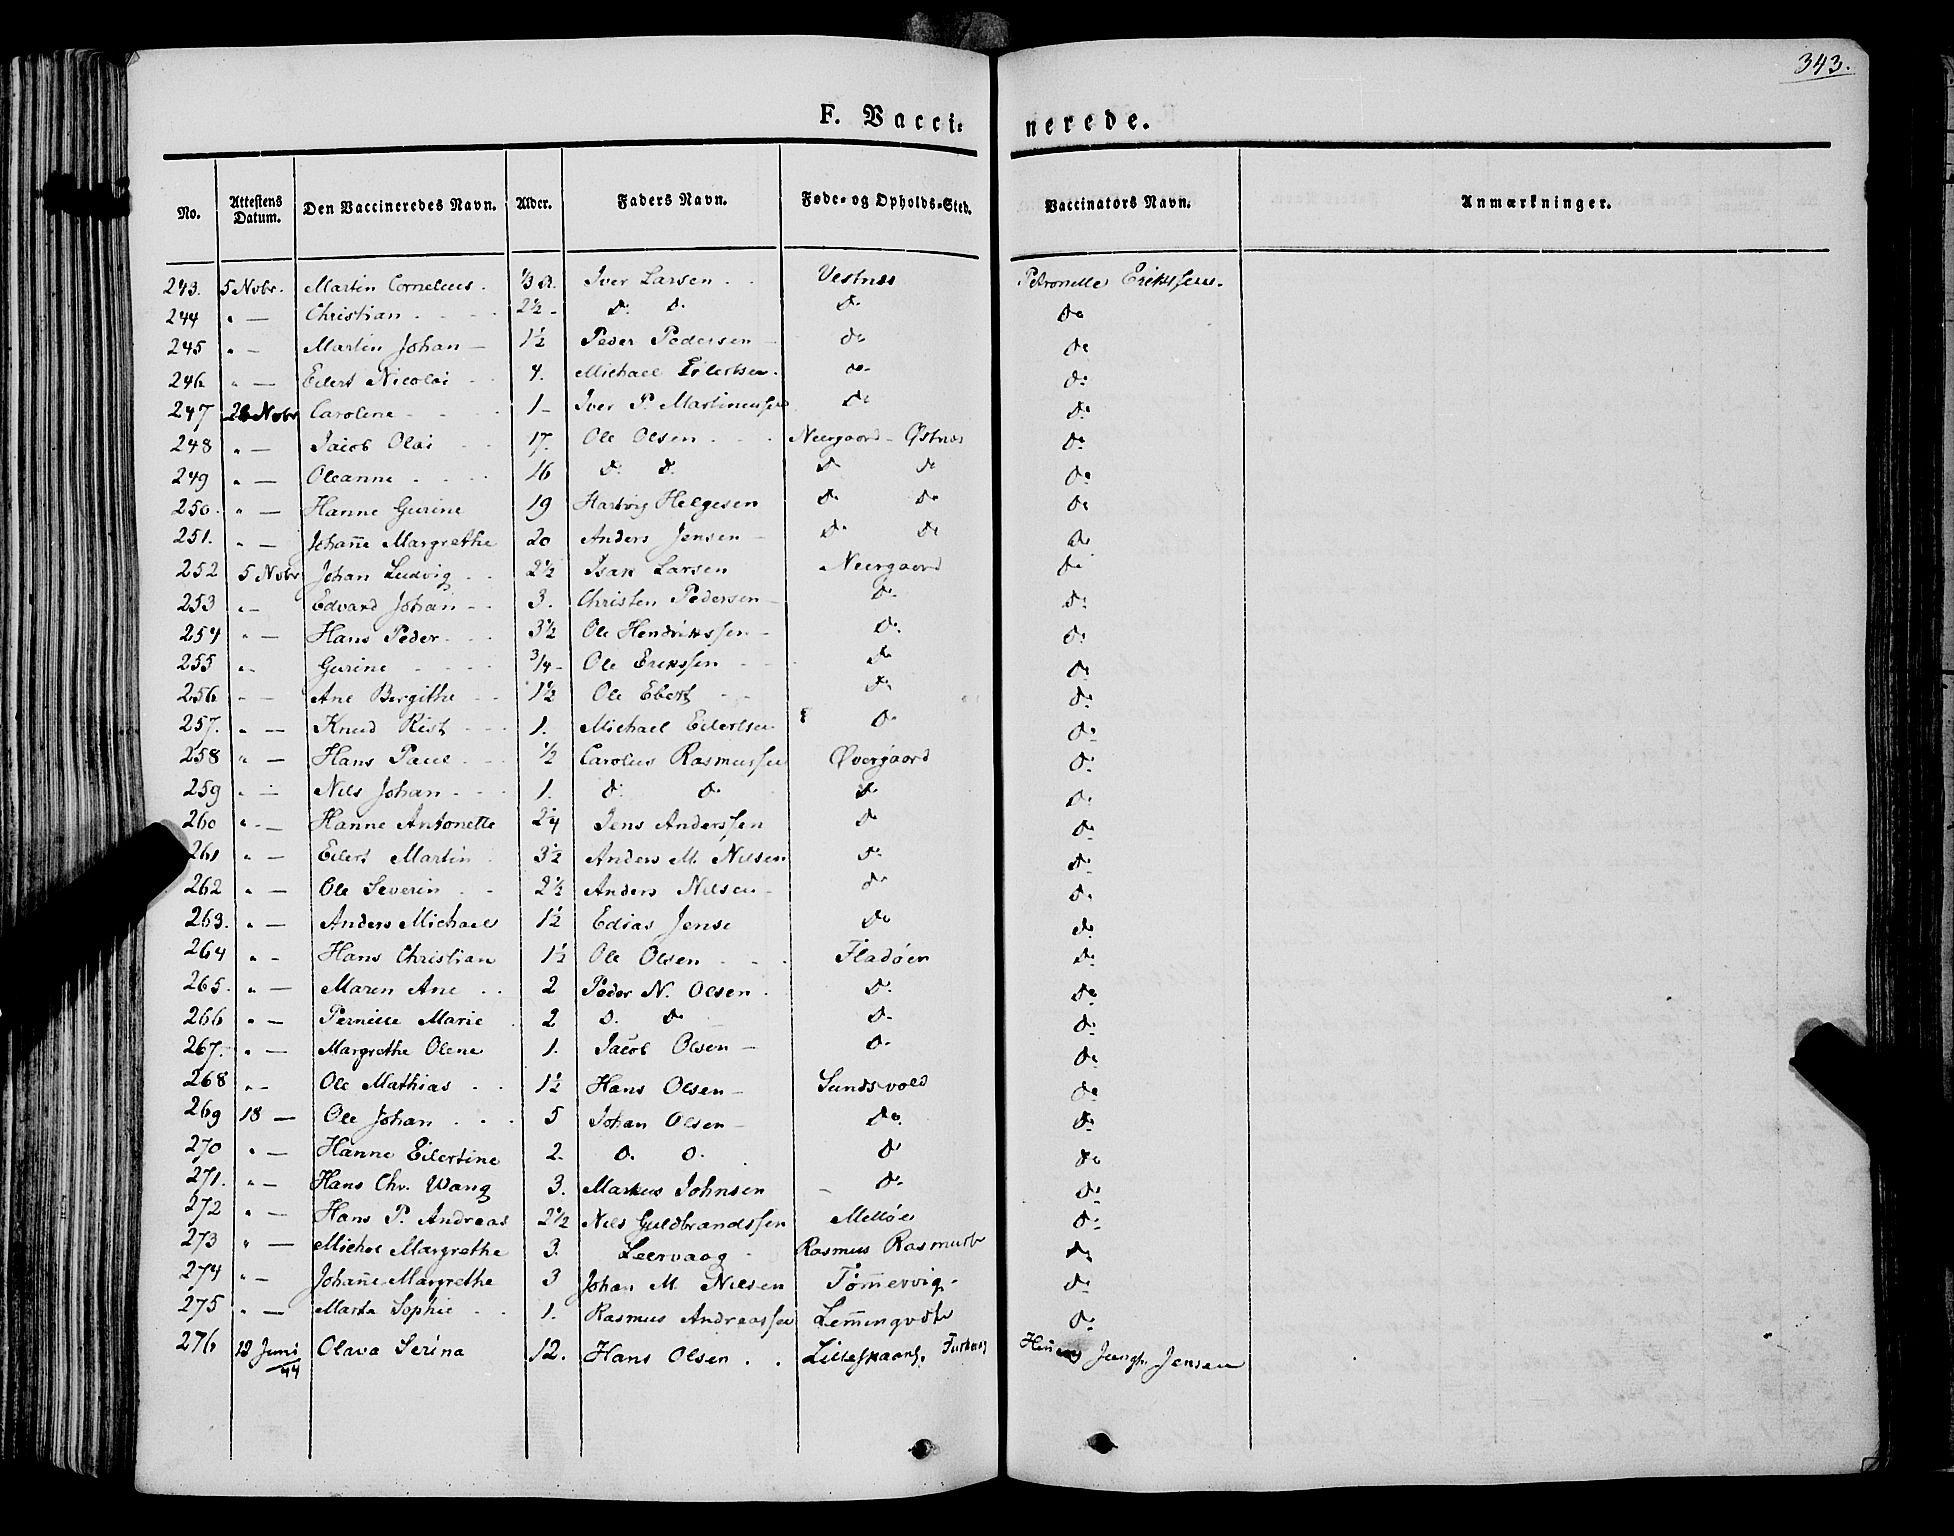 343.
F. Vaccinerede.
No. | Attestens Datum. | Den Vaccineredes Navn. | Alder. | Faders Navn. | Føde- og Opholds-Sted. | Vaccinators Navn. | Anmærkninger.
243. | 5 Nobr. | Martin Cornelius. | 1/3 A. | Iver Larsen | Vestnes | Petronelle Erikssen.
244 | " — | Christian | 2½ - | do do | do | do
245 | " — | Martin Johan — | 1½ | Peder Pedersen — | do | do
246 | " — | Eilert Nicolai | 4. | Michael Eilertsen. | do | do
247 | 28 Nobr | Caroline | 1 - | Iver P. Martinussen | do | do
248 | " — | Jacob Olai | 17. | Ole Olsen | Neergaard - Østnes | do
249 | " — | Oleanne | 16 | do do | do do | do
250. | " — | Hanne Gurine | 19 | Hartvig Helgesen | do do | do
251. | " — | Johañe Margrethe | 20 | Anders Jensen — | do do | do
252 | 5 Nobr | Johan Ludvig | 2½ | Isak Larsen | Neergaard | do
253 | " — | Edvard Johan | 3. | Christen Pedersen | do | do
254 | " — | Hans Peder | 3½ | Ole Hendrikssen | do | do
255 | " — | Gurine | 3/4 - | Ole Erikssen | do | do
256 | " — | Ane Bergithe | 1½ | Ole Ebert | do | do
257. | " — | Knud Rist | 1. | Michael Eilertsen | do | do
258 | " — | Hans Paul | ½ | Carolus Rasmussen | Øvergaard | do
259 | " — | Nils Johan | 1. | do do | do | do
260 | " — | Hanne Antonette | 2¼ | Jens Anderssen | do | do
261 | " — | Eilert Martin | 3½ | Anders M. Nilsen | do | do
262 | " — | Ole Severin | 2½ | Anders Nilsen | do | do
263. | " — | Anders Michael | 1½ | Edias Jense | do | do
264 | " — | Hans Christian | 1½ | Ole Olsen | Fladøen | do
265. | " — | Maren Ane | 2 | Peder N. Olsen | do | do
266 | " — | Pernille Marie | 2 | do do | do | do
267. | " — | Margrethe Olene | 1. | Jacob Olsen — | do | do
268 | " — | Ole Mathias | 1½ | Hans Olsen — | Sundsvold | do
269 | 18 — | Ole Johan | 5 | Johan Olsen — | do | do
270 | " — | Hanne Eilertine | 2. | do do | do | do
271. | " — | Hans Chr. Wang | 3. | Markus Johnsen | do | do
272 | " — | Hans P. Andreas | 2½ | Nils Guldbrandssen | Melløe | do
273 | " — | Michel Margrethe | 3. | Leervaag | Rasmus Rasmuss | do
274 | " — | Johañe Margrethe | 3 | Johan M. Nilsen | Tom̃ervig | do
275 | " — | Marta Sophie | 1. | Rasmus Andreassen | | do
276 | 12 Juni 44 | Olava Serina | 12. | Hans Olsen | Lilleskaans. | Jungh. Jensen